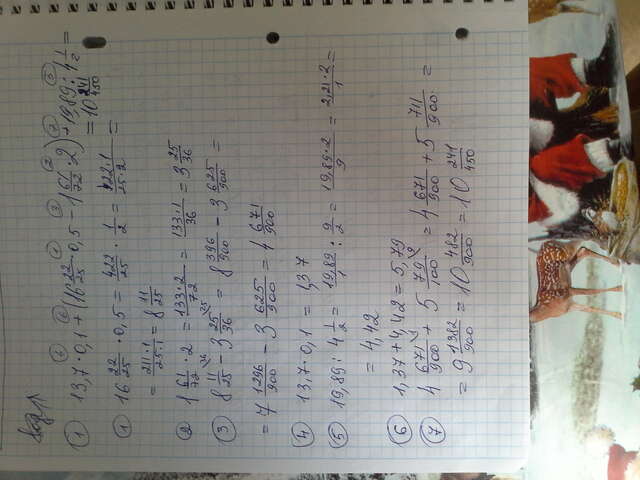 ① 13,7 · 0,1 + (16 22/25 · 0,5 - 1 61/72 · 2) + 19,89 : 4 1/2 =
= 10 241/450
① 16 22/25 · 0,5 = 422/25 · 1/2 = 422·1/25·2 =
= 211·1/25·1 = 8 11/25
② 1 61/72 · 2 = 133·2/72 = 133·1/36 = 3 25/36
③ 8 11/25 - 3 25/36 = 8 396/900 - 3 625/900 =
= 7 1296/900 - 3 625/900 = 4 671/900
④ 13,7 · 0,1 = 1,37
⑤ 19,89 : 4 1/2 = 19,89/1 : 9/2 = 19,89·2/9 = 2,21·2/1 =
= 4,42
⑥ 1,37 + 4,42 = 5,79
⑦ 4 671/900 + 5 79/100 = 4 671/900 + 5 711/900 =
= 9 1382/900 = 10 482/900 = 10 241/450